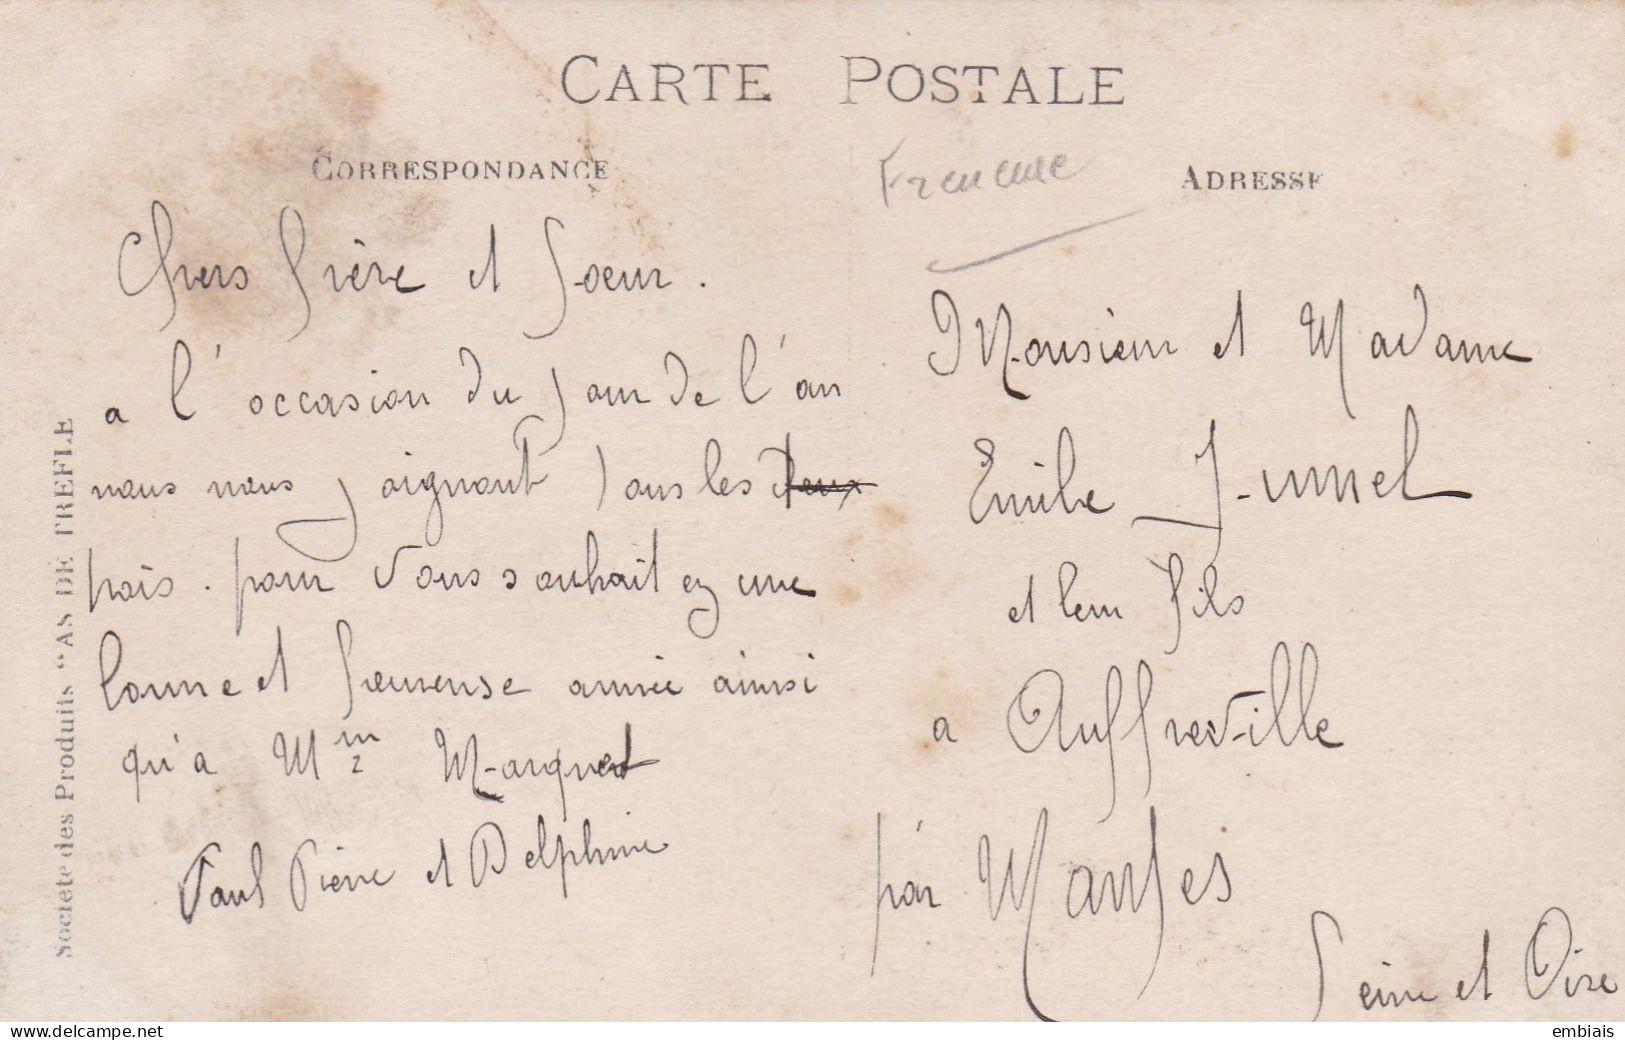 CARTE POSTALE
CORRESPONDANCE
Chers frère et Soeur.
a l'occasion du jour de l'an
nous nous joignont tous les deux
trois. pour vous souhaitez une
bonne et heureuse année ainsi
qu'a Mme Marquet
Paul Pierre et Delphine
ADRESSE
Monsieur et Madame
Emile Jumel
et leur fils
a Auffreville
par Mantes
Seine et Oise
Societe des Produits "AS DE TREFLE
www.delcampe.net
embiais